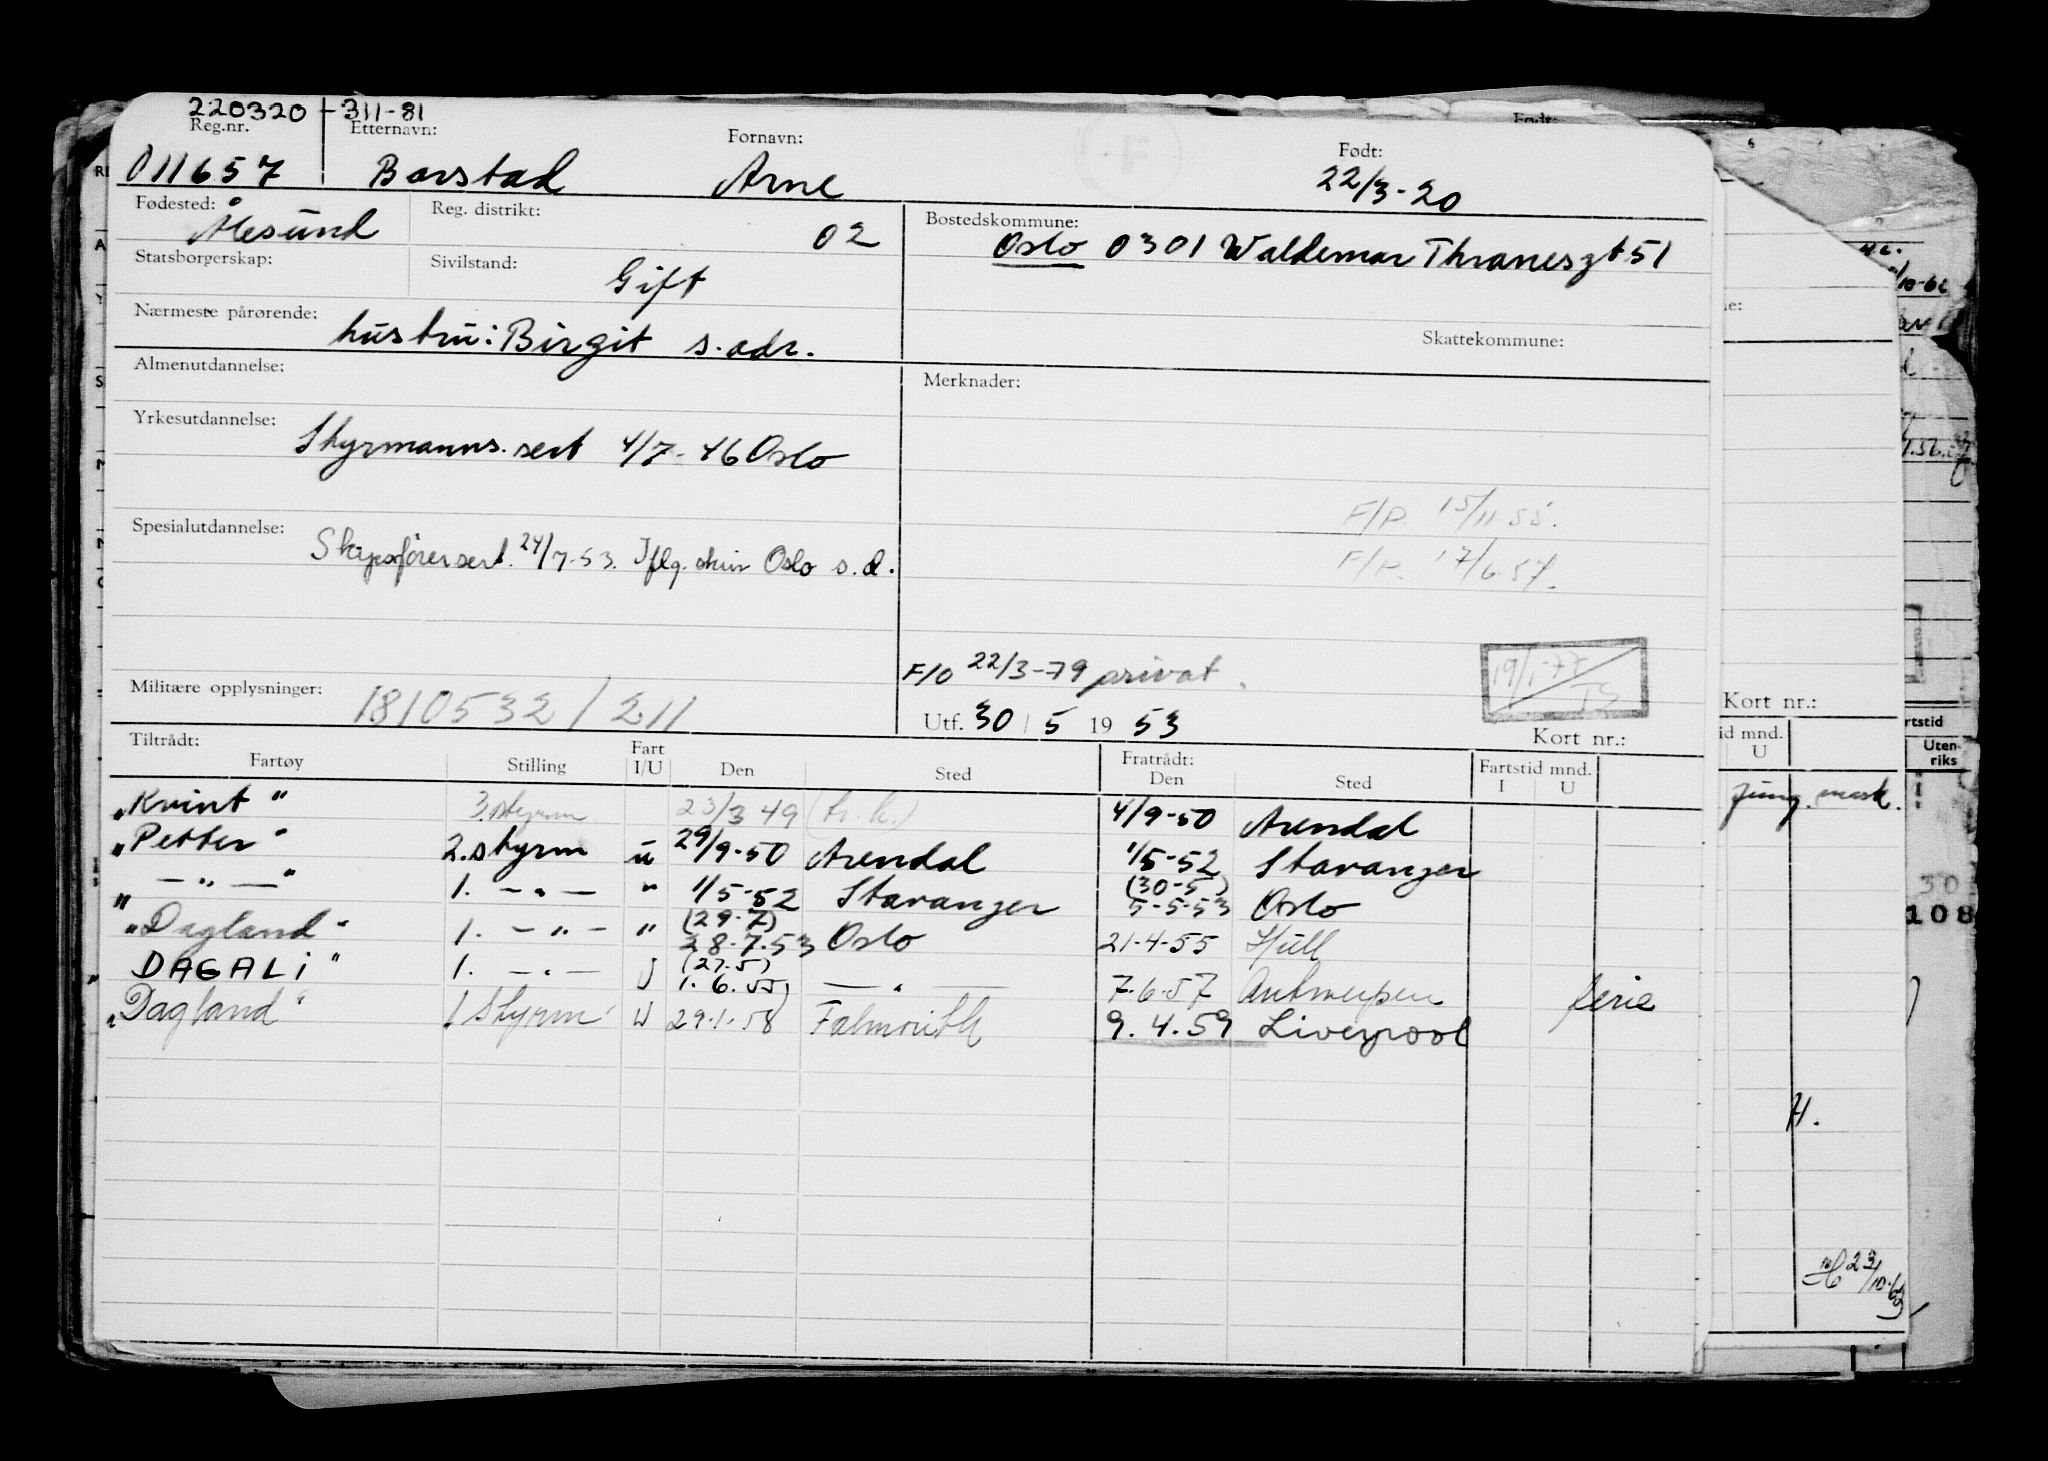 220320 - 311-81
Reg.nr. Etternavn: Fornavn: Født:
011657 Barstad Arne 22/3-20
Fødested: Ålesund Reg. distrikt: 02 Bostedskommune: Oslo 0301 Waldemar Thranesgt 51
Statsborgerskap: Sivilstand: Gift
Nærmeste pårørende: hustru: Birgit s. adr. Skattekommune:
Almenutdannelse: Merknader:
Yrkesutdannelse: Styrmanns. sert 4/7-46 Oslo
F/P. 15/11.55.
Spesialutdannelse: Skipsførersert. 24/7-53. Iflg. skriv Oslo s.d.
F/P. 17/6.57.
F/O 22/3-79 privat.
19/1-77
Militære opplysninger: 1810532/211
Utf. 30/5 1953 Kort nr.:
Tiltrådt: Fratrådt:
Fartøy Stilling Fart I/U Den Sted Den Sted Fartstid mnd. I U
"Kvint" 3. styrm 23/3 49 4/9-50 Arendal
"Petter" 2. styrm u 29/9-50 Arendal 1/5-52 Stavanger
" — " — " 1. — " — " 1/5-52 Stavanger (30-5) 5-5-53 Oslo
"Dagland" 1. — " — " (29-7) 28.7.53 Oslo 21-4-55 Hull
"DAGALI" 1. — " — U (27.5) 1.6.55 — " — 7.6.57 Antwerpen ferie
"Dagland" 1 Styrm U 29.1.58 Falmouth 9.4.59 Liverpool
Født:
Kort nr.:
U
Uten-
riks
108
H.
23/10-63